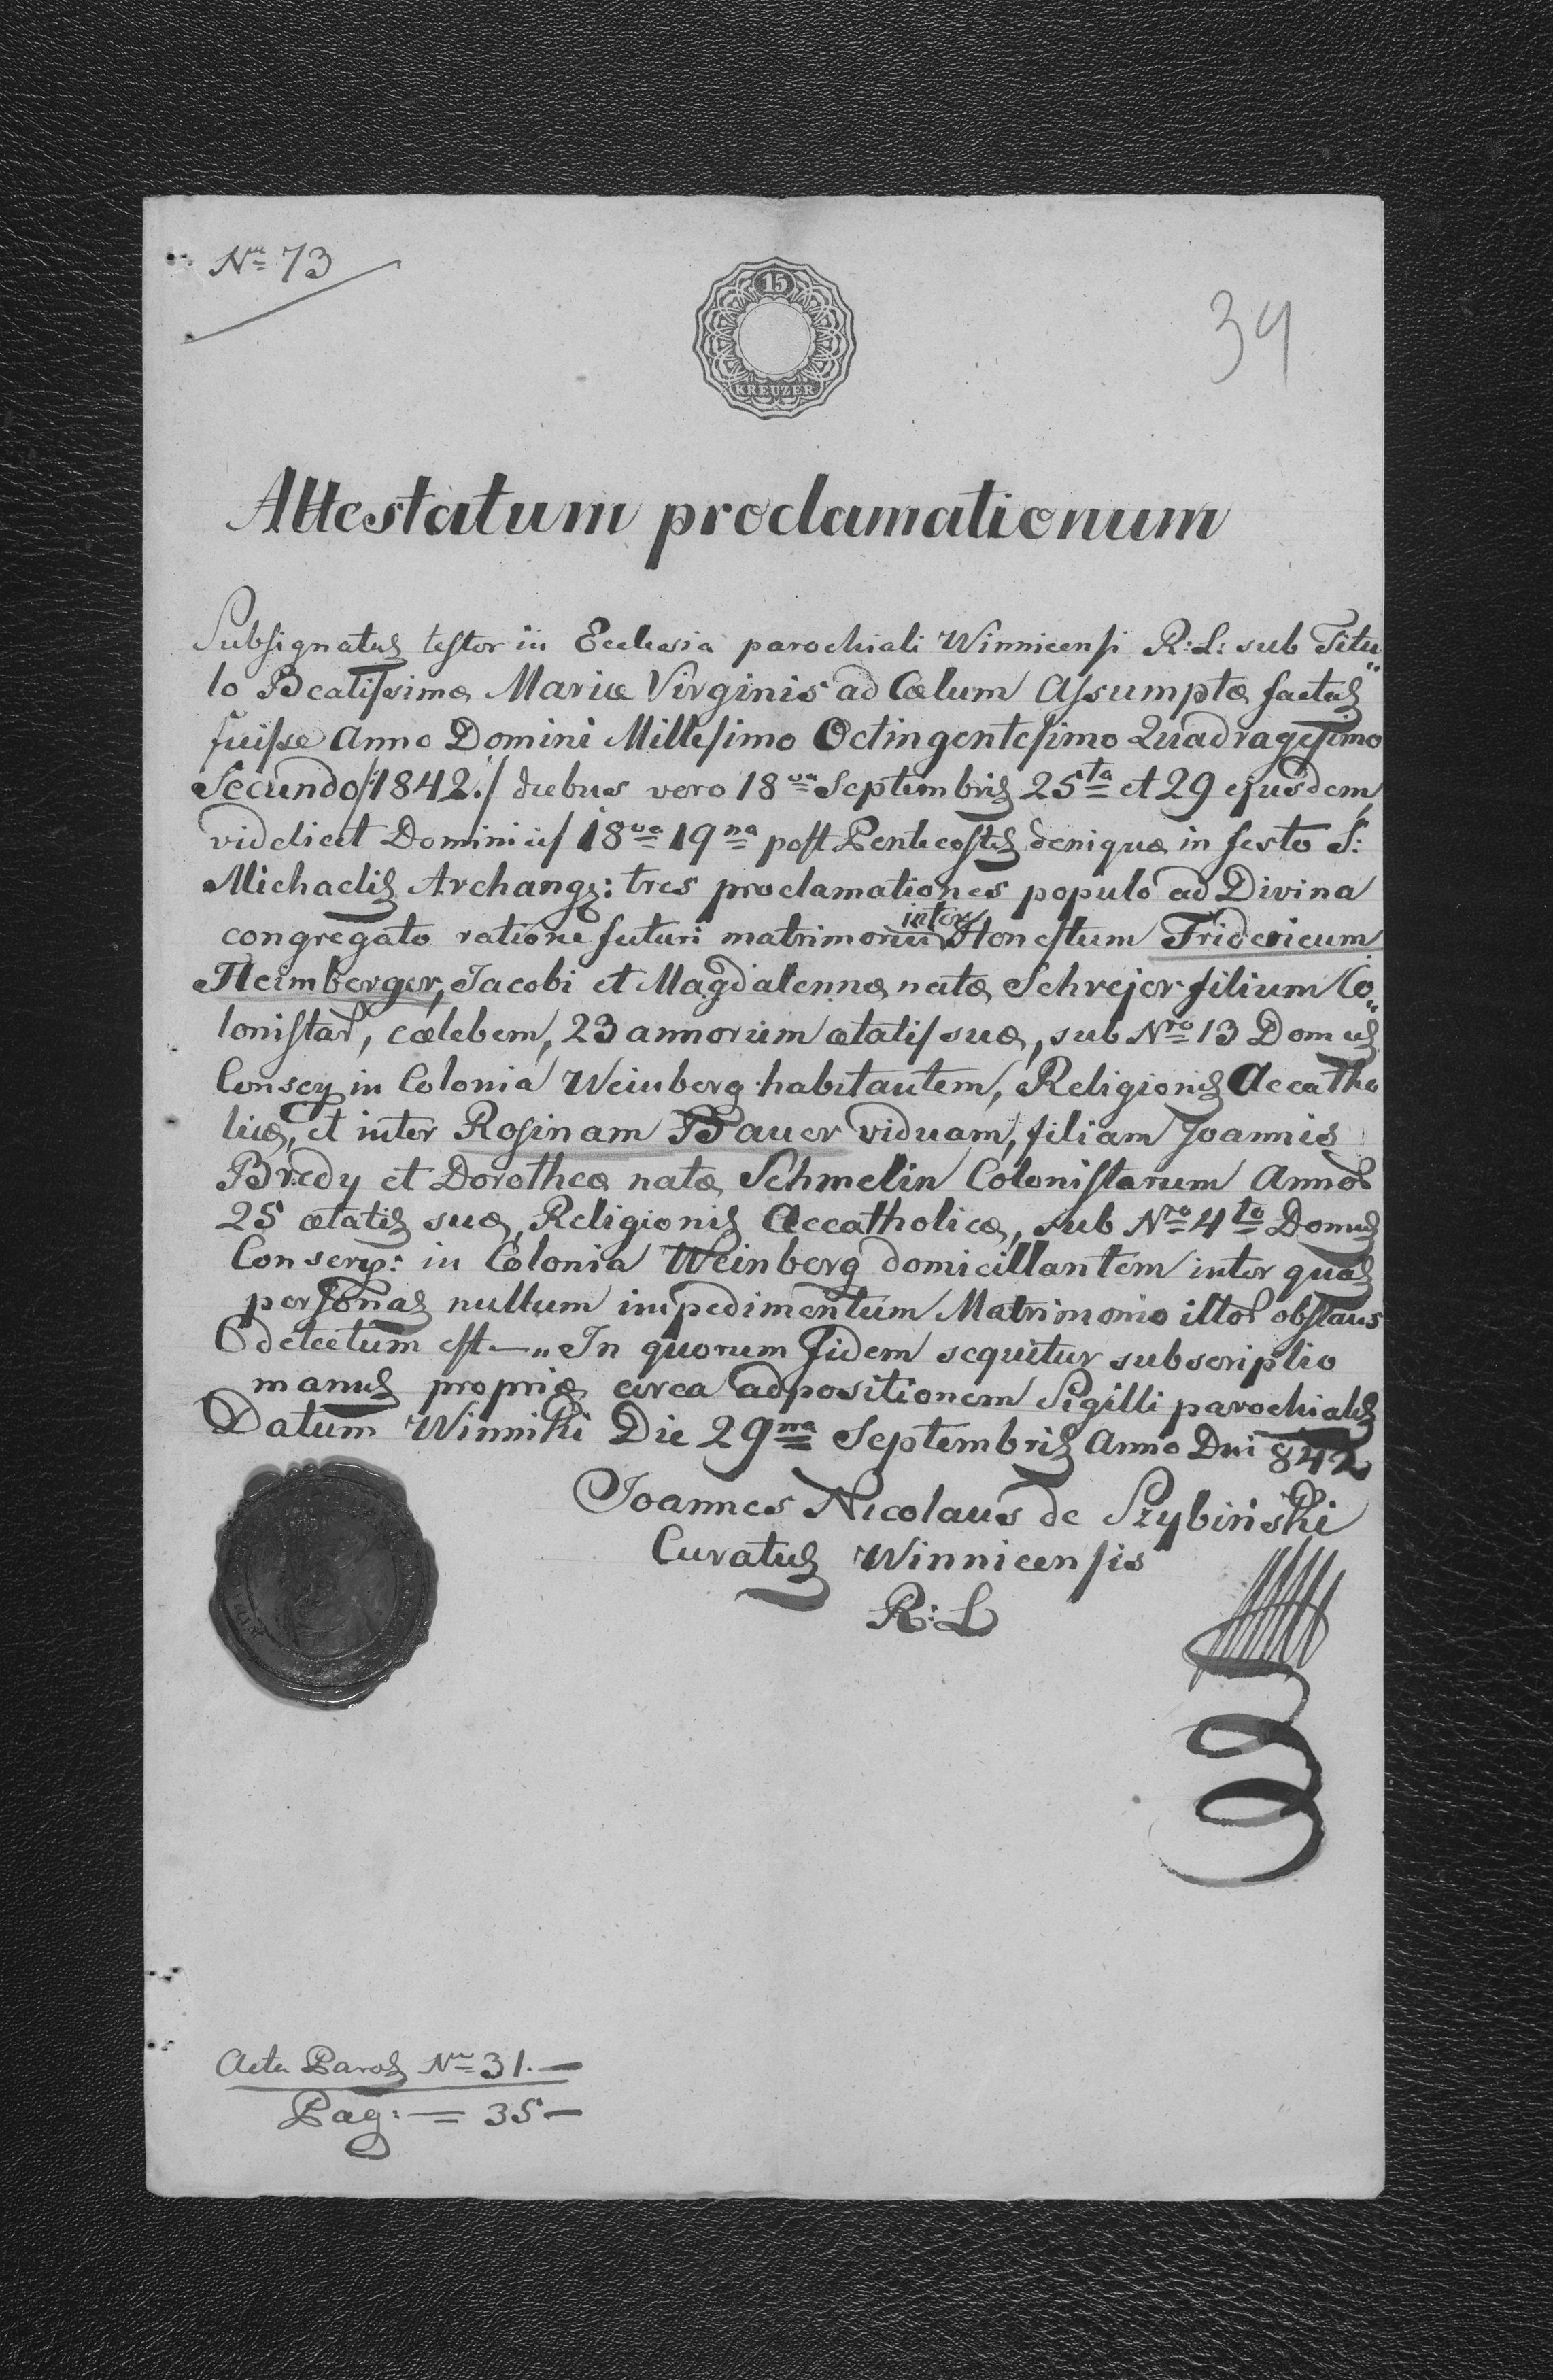 Nro 73
15
KREUZER
34
Attestatum proclamationum
Subsignatus testor in Ecclesia parochiali Winnicensi R: L: sub Titu„
lo Beatissimæ Mariæ Virginis ad Cœlum Assumptæ factas
fuisse Anno Domini Millesimo Octingentesimo Quadragesimo
Secundo /:1842:/ diebus vero 18va Septembris 25ta et 29 ejusdem,
videlicet Dominicis 18va 19na post Pentecostes denique in festo S:
Michaelis Archang: tres proclamationes populo ad Divina
congregato ratione futuri matrimonii inter Honestum Fridericum
Heimberger, Jacobi et Magdalennæ natæ Schrejer filium Co„
lonistar, cælebem, 23 annorum ætatis suæ, sub Nro 13 Domus
Conscr. in Colonia Weinberg habitantem, Religionis Accatho
licæ, et inter Rosinam Bauer viduam, filiam Joannis
Bredy et Dorotheæ natæ Schmelin Colonistarum Annor
25 ætatis suæ, Religionis Accatholicæ, sub Nro 4to Domus
Conscrip: in Colonia Weinberg domicillantem inter quas
personas nullum impedimentum Matrimonio illor obstans
detectum est —„ In quorum fidem sequitur subscriptio
manus propriæ circa adpositionem Sigilli parochialis
Datum Winniki Die 29na Septembris Anno Dni 842
Joannes Nicolaus de Szybiński
Curatus Winnicensis
R: L
Acta Paroh Nro 31. —
Pag: = 35 —